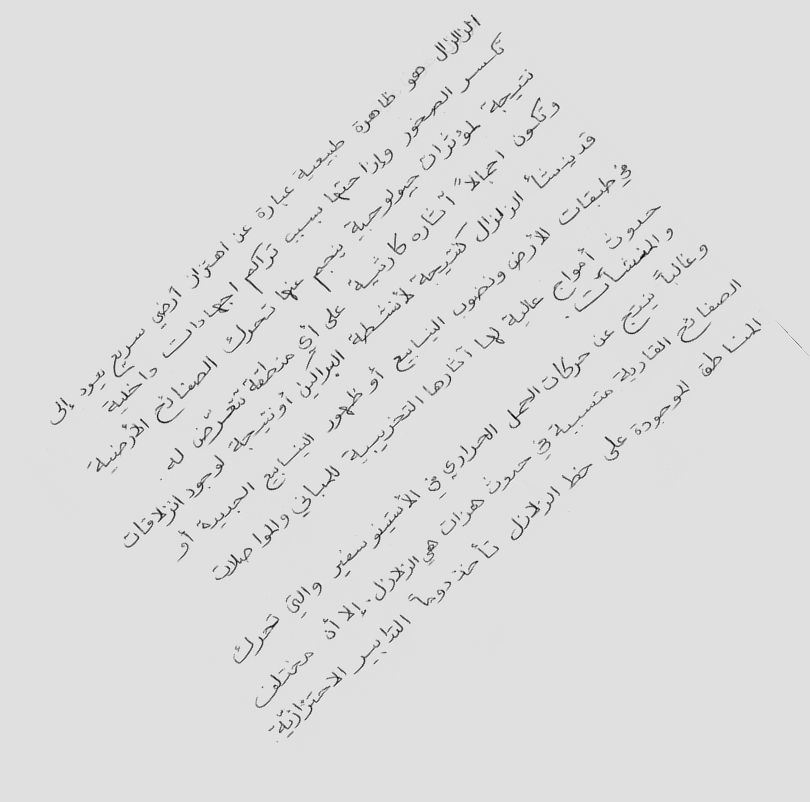 الزلزال هو ظاهرة طبيعية عبارة عن اهتزاز أرضي سريع يعود إلى
تكسر الصخور وإزاحتها بسبب تراكم اجهادات داخلية
نتيجة لمؤثرات جيولوجية ينجم عنها تحرك الصفائح الأرضية
وتكون اجمالاً آثاره كارثية على أي منطقة تتعرّض له.
قد ينشأ الزلزال كنتيجة لأنشطة البراكين أو نتيجة لوجود انزلاقات
في طبقات الأرض ونضوب الينابيع أو ظهور الينابيع الجديدة أو
حدوث أمواج عالية لها آثارها التخريبية للمباني والمواصلات
والمنشآت.
وغالباً ينتج عن حركات الحمل الحراري في الأستينوسفير والتي تحرك
الصفائح القارية متسببة في حدوث هزات هي الزلازل. إلا أن مختلف
المناطق الموجودة على خط الزلازل تأخذ دوماً التدابير الاحترازيّة.